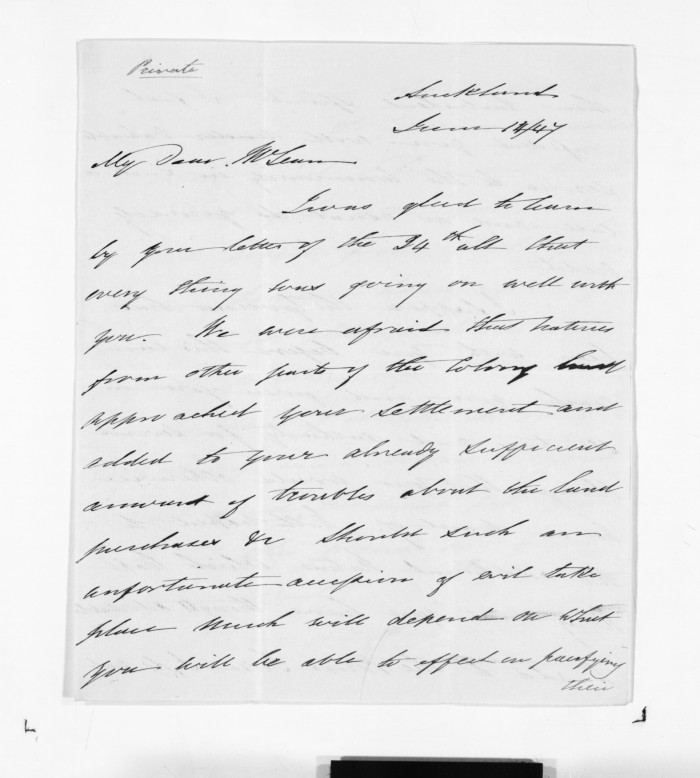 Private
Auckland
June 12/47
My Dear McLean
I was glad to learn
by your letter of the 24th ult that
every thing was going on well with
you. We were afraid that natives
from other parts of the Colony had
approached your settlement and
added to your already sufficient
amount of troubles about the land
purchases &c Should such an
unfortunate accession of evil take
place much will depend on what
you will be able to effect in pacifying
their